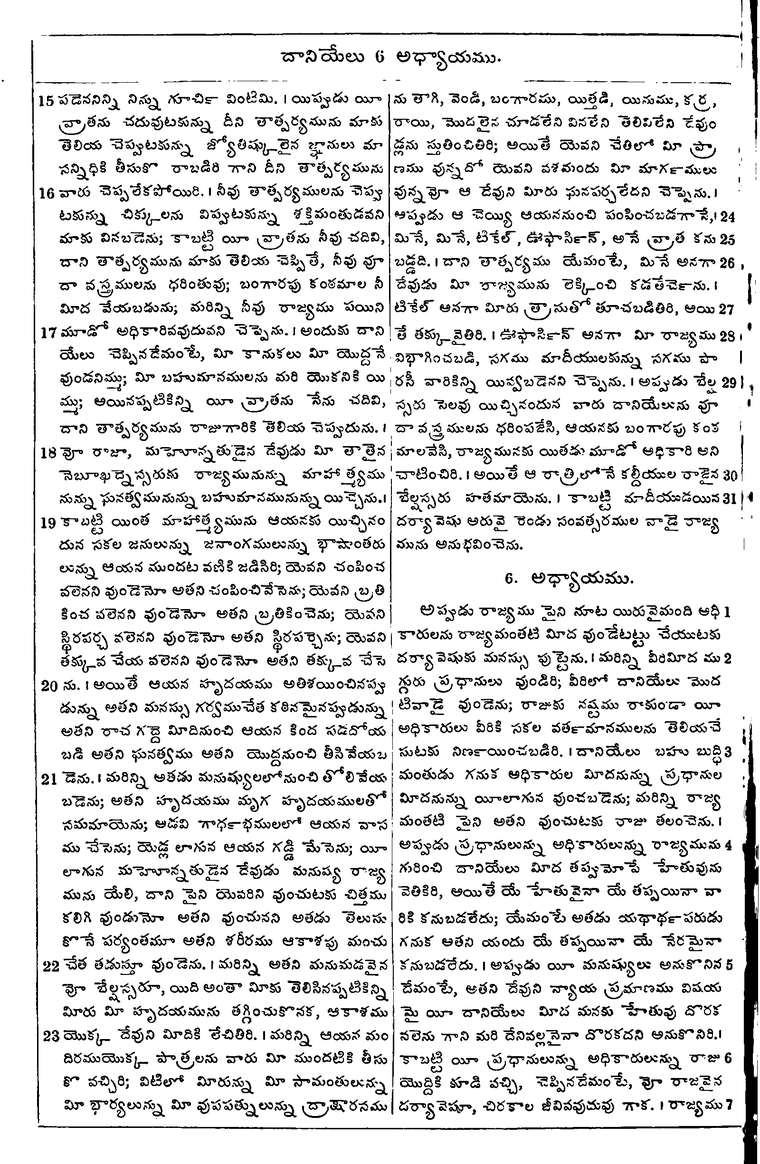 దానియేలు 6 అధ్యాయము.
15 పడెననిన్ని నిన్ను గూర్చి వింటిమి. । యిప్పుడు యీ
వ్రాతను చదువుటకున్ను దీని తాత్పర్యమును మాకు
తెలియ చెప్పుటకున్ను జ్యోతిష్కులైన జ్ఞానులు మా
సన్నిధికి తీసుకొ రాబడిరి గాని దీని తాత్పర్యమును
16 వారు చెప్పలేకపోయిరి. । నీవు తాత్పర్యములను చెప్పు
టకున్ను చిక్కులను విప్పుటకున్ను శక్తిమంతుడవని
మాకు వినబడెను; కాబట్టి యీ వ్రాతను నీవు చదివి,
దాని తాత్పర్యమును మాకు తెలియ చెప్పితే, నీవు వూ
దా వస్త్రములను ధరింతువు; బంగారపు కంఠమాల నీ
మీద వేయబడును; మరిన్ని నీవు రాజ్యము పయిని
17 మూడో అధికారివవుదువని చెప్పెను. । అందుకు దాని
యేలు చెప్పినదేమంటే, మీ కానుకలు మీ యొద్దనే
వుండనిమ్ము; మీ బహుమానములను మరి యొకనికి యి
మ్ము; అయినప్పటికిన్ని యీ వ్రాతను నేను చదివి,
దాని తాత్పర్యమును రాజుగారికి తెలియ చెప్పుదును. ।
18 వొ రాజా, మహోన్నతుడైన దేవుడు మీ తాతైన
నెబూఖద్నెస్సరుకు రాజ్యమునున్ను మాహాత్మ్యము
నున్ను ఘనత్వమునున్ను బహుమానమునున్ను యిచ్చెను. ।
19 కాబట్టి యింత మాహాత్మ్యమును ఆయనకు యిచ్చినం
దున సకల జనులున్ను జనాంగములున్ను భాషాంతరు
లున్ను ఆయన ముందట వణికి జడిసిరి; యెవని చంపించ
వలెనని వుండెనో అతని చంపించివేసెను; యెవని బ్రతి
కించ వలెనని వుండెనో అతని బ్రతికించెను; యెవని
స్థిరపర్చ వలెనని వుండెనో అతని స్థిరపర్చెను; యెవని
తక్కువ చేయ వలెనని వుండెనో అతని తక్కువ చేసె
20 ను. । అయితే ఆయన హృదయము అతిశయించినప్పు
డున్ను అతని మనస్సు గర్వముచేత కఠినమైనప్పుడున్ను
అతని రాచ గద్దె మీదినుంచి ఆయన కింద పడదోయ
బడి అతని ఘనత్వము అతని యొద్దనుంచి తీసివేయబ
21 డెను. । మరిన్ని అతడు మనుష్యులలోనుంచి తోలివేయ
బడెను; అతని హృదయము మృగ హృదయములతో
సమమాయెను; ఆడవి గార్ధభములలో ఆయన వాస
ము చేసెను; యెడ్ల లాగున ఆయన గడ్డి మేసెను; యీ
లాగున మహోన్నతుడైన దేవుడు మనుష్య రాజ్య
మును యేలి, దాని పైని యెవరిని వుంచుటకు చిత్తము
కలిగి వుండునో అతని వుంచునని అతడు తెలుసు
కొనే పర్యంతమూ అతని శరీరము ఆకాశపు మంచు
22 చేత తడుస్తూ వుండెను. । మరిన్ని అతని మనుమడవైన
వొ బేల్షస్సరూ, యిది అంతా మీకు తెలిసినప్పటికిన్ని
మీరు మీ హృదయమును తగ్గించుకొనక, ఆకాశము
23 యొక్క దేవుని మీదికి లేచితిరి. । మరిన్ని ఆయన మం
దిరముయొక్క పాత్రలను వారు మీ ముందటికి తీసు
కొ వచ్చిరి; వీటిలో మీరున్ను మీ సామంతులున్ను
మీ భార్యలున్ను మీ వుపపత్నులున్ను ద్రాక్షారసము
ను తాగి, వెండి, బంగారము, యిత్తడి, యినుము, కర్ర,
రాయి, మొదలైన చూడలేని వినలేని తెలిపలేని దేవుం
డ్లను స్తుతించితిరి; అయితే యెవని చేతిలో మీ ప్రా
ణము వున్నదో యెవని వశమందు మీ మార్గములు
వున్నవొ ఆ దేవుని మీరు ఘనపర్చలేదని చెప్పెను. ।
అప్పుడు ఆ చెయ్యి ఆయననుంచి పంపించబడగానే, । 24
మినే, మినే, టికేల్, ఊఫార్సిన్, అనే వ్రాత కను 25
బడ్డది. । దాని తాత్పర్యము యేమంటే, మినే అనగా 26
దేవుడు మీ రాజ్యమును లెక్కించి కడతేర్చెను. ।
టికేల్ అనగా మీరు త్రాసుతో తూచబడితిరి, అయి 27
తే తక్కువైతిరి. । ఊఫార్సిన్ అనగా మీ రాజ్యము 28
విభాగించబడి, సగము మాదీయులకున్ను సగము పా
రసీ వారికిన్ని యివ్వబడెనని చెప్పెను. । అప్పుడు బేల్ష 29
స్సరు సెలవు యిచ్చినందున వారు దానియేలును వూ
దా వస్త్రములను ధరింపజేసి, ఆయనకు బంగారపు కంఠ
మాలవేసి, రాజ్యమునకు యితడు మూడో అధికారి అని
చాటించిరి. । అయితే ఆ రాత్రిలోనే కల్దీయుల రాజైన 30
బేల్షస్సరు హతమాయెను. । కాబట్టి మాదీయుడయిన 31
దర్యావెషు అరువై రెండు సంవత్సరముల వాడై రాజ్య
మును అనుభవించెను.
6. అధ్యాయము.
అప్పుడు రాజ్యము పైని నూట యిరువైమంది అధి 1
కారులను రాజ్యమంతటి మీద వుండేటట్టు చేయుటకు
దర్యావెషుకు మనస్సు పుట్టెను. । మరిన్ని వీరిమీద ము 2
గ్గురు ప్రధానులు వుండిరి; వీరిలో దానియేలు మొద
టివాడై వుండెను; రాజుకు నష్టము రాకుండా యీ
అధికారులు వీరికి సకల వర్తమానములను తెలియచే
సుటకు నిర్ణయించబడిరి. । దానియేలు బహు బుద్ధి 3
మంతుడు గనుక అధికారుల మీదనున్ను ప్రధానుల
మీదనున్ను యీలాగున వుంచబడెను; మరిన్ని రాజ్య
మంతటి పైని అతని వుంచుటకు రాజు తలంచెను. ।
అప్పుడు ప్రధానులున్ను అధికారులున్ను రాజ్యమును 4
గురించి దానియేలు మీద తప్పుమోపే హేతువును
వెతికిరి, అయితే యే హేతువైనా యే తప్పయినా వా
రికి కనుబడలేదు; యేమంటే అతడు యథార్థపరుడు
గనుక అతని యందు యే తప్పయినా యే నేరమైనా
కనుబడలేదు. । అప్పుడు యీ మనుష్యులు అనుకొనిన 5
దేమంటే, అతని దేవుని న్యాయ ప్రమాణము విషయ
మై యీ దానియేలు మీద మనకు హేతువు దొరక
వలెను గాని మరి దేనివల్లనైనా దొరకదని అనుకొనిరి. ।
కాబట్టి యీ ప్రధానులున్ను అధికారులున్ను రాజు 6
యొద్దికి కూడి వచ్చి, చెప్పినదేమంటే, వొ రాజవైన
దర్యావెషూ, చిరకాల జీవివవుదువు గాక. । రాజ్యము 7